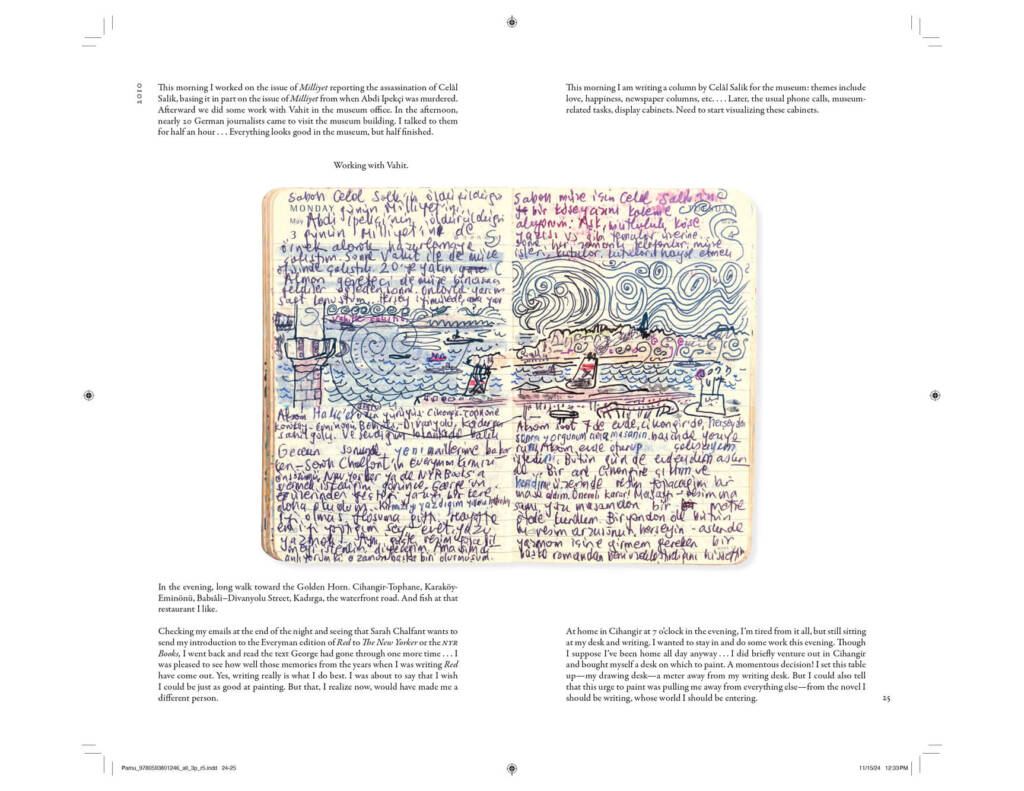 2010
This morning I worked on the issue of Milliyet reporting the assassination of Celâl
Salik, basing it in part on the issue of Milliyet from when Abdi Ipekçi was murdered.
Afterward we did some work with Vahit in the museum office. In the afternoon,
nearly 20 German journalists came to visit the museum building. I talked to them
for half an hour . . . Everything looks good in the museum, but half finished.
Working with Vahit.
Sabah Celâl Salik'in öldürüldüğü
MONDAY günün Milliyet'ini
May Abdi İpekçi'nin öldürüldüğü
3 günün Milliyet'ini de
örnek alarak hazırlamaya
çalıştım. Sonra Vahit ile de müze
ofisinde çalıştık. 20'ye yakın
Alman gazeteci de müze binasına
geldiler öğleden sonra. Onlarla yarım
saat konuştum. Herşey iyi müzede, ama yarı
Akşam Haliç'e uzun yürüyüş. Cihangir-Tophane
Karaköy-Eminönü, Babıâli-Divanyolu, Kadırga
sahil yolu. Ve sevdiğim lokantada balık
Gecenin sonunda, yeni maillerime bakar
ken Sarah Chalfant'ın Everyman Kırmızı
önsözünü New Yorker ya da NYR Books'a
This morning I am writing a column by Celâl Salik for the museum: themes include
love, happiness, newspaper columns, etc. . . . Later, the usual phone calls, museum-
related tasks, display cabinets. Need to start visualizing these cabinets.
Sabah müze için Celâl Salik'in
bir köşe yazısını kaleme
alıyorum: Aşk, mutluluk, köşe
yazısı vs gibi temalar üzerine
Sonra, her zamanki telefonlar, müze
işleri, kutular. Kutuları hayal etmek
Akşam saat 7'de evde, Cihangir'de, herşeyden
sonra yorgunum ama masanın başında yazıyo
rum. Akşam evde oturup çalışayım
istedim. Bütün gün de evdeydim aslın
da. Bir ara Cihangir'e çıktım ve
kendime üzerinde resim yapacağım bir
masa aldım. Önemli karar! Masayı - resim ma
sını yazı masamdan bir metre
öteye kurdum. Bir yandan da bütün
bu resim arzusunun herşeyin - aslında
yazmam içine girmem gereken bir
başka romandan beni uzaklaştırdığını hissettim
In the evening, long walk toward the Golden Horn. Cihangir-Tophane, Karaköy-
Eminönü, Babıâli–Divanyolu Street, Kadırga, the waterfront road. And fish at that
restaurant I like.
Checking my emails at the end of the night and seeing that Sarah Chalfant wants to
send my introduction to the Everyman edition of Red to The New Yorker or the NYR
Books, I went back and read the text George had gone through one more time . . . I
was pleased to see how well those memories from the years when I was writing Red
have come out. Yes, writing really is what I do best. I was about to say that I wish
I could be just as good at painting. But that, I realize now, would have made me a
different person.
At home in Cihangir at 7 o'clock in the evening, I'm tired from it all, but still sitting
at my desk and writing. I wanted to stay in and do some work this evening. Though
I suppose I've been home all day anyway . . . I did briefly venture out in Cihangir
and bought myself a desk on which to paint. A momentous decision! I set this table
up—my drawing desk—a meter away from my writing desk. But I could also tell
that this urge to paint was pulling me away from everything else—from the novel I
should be writing, whose world I should be entering.
25
Pamu_9780593801246_all_3p_r5.indd 24-25
11/15/24 12:33 PM